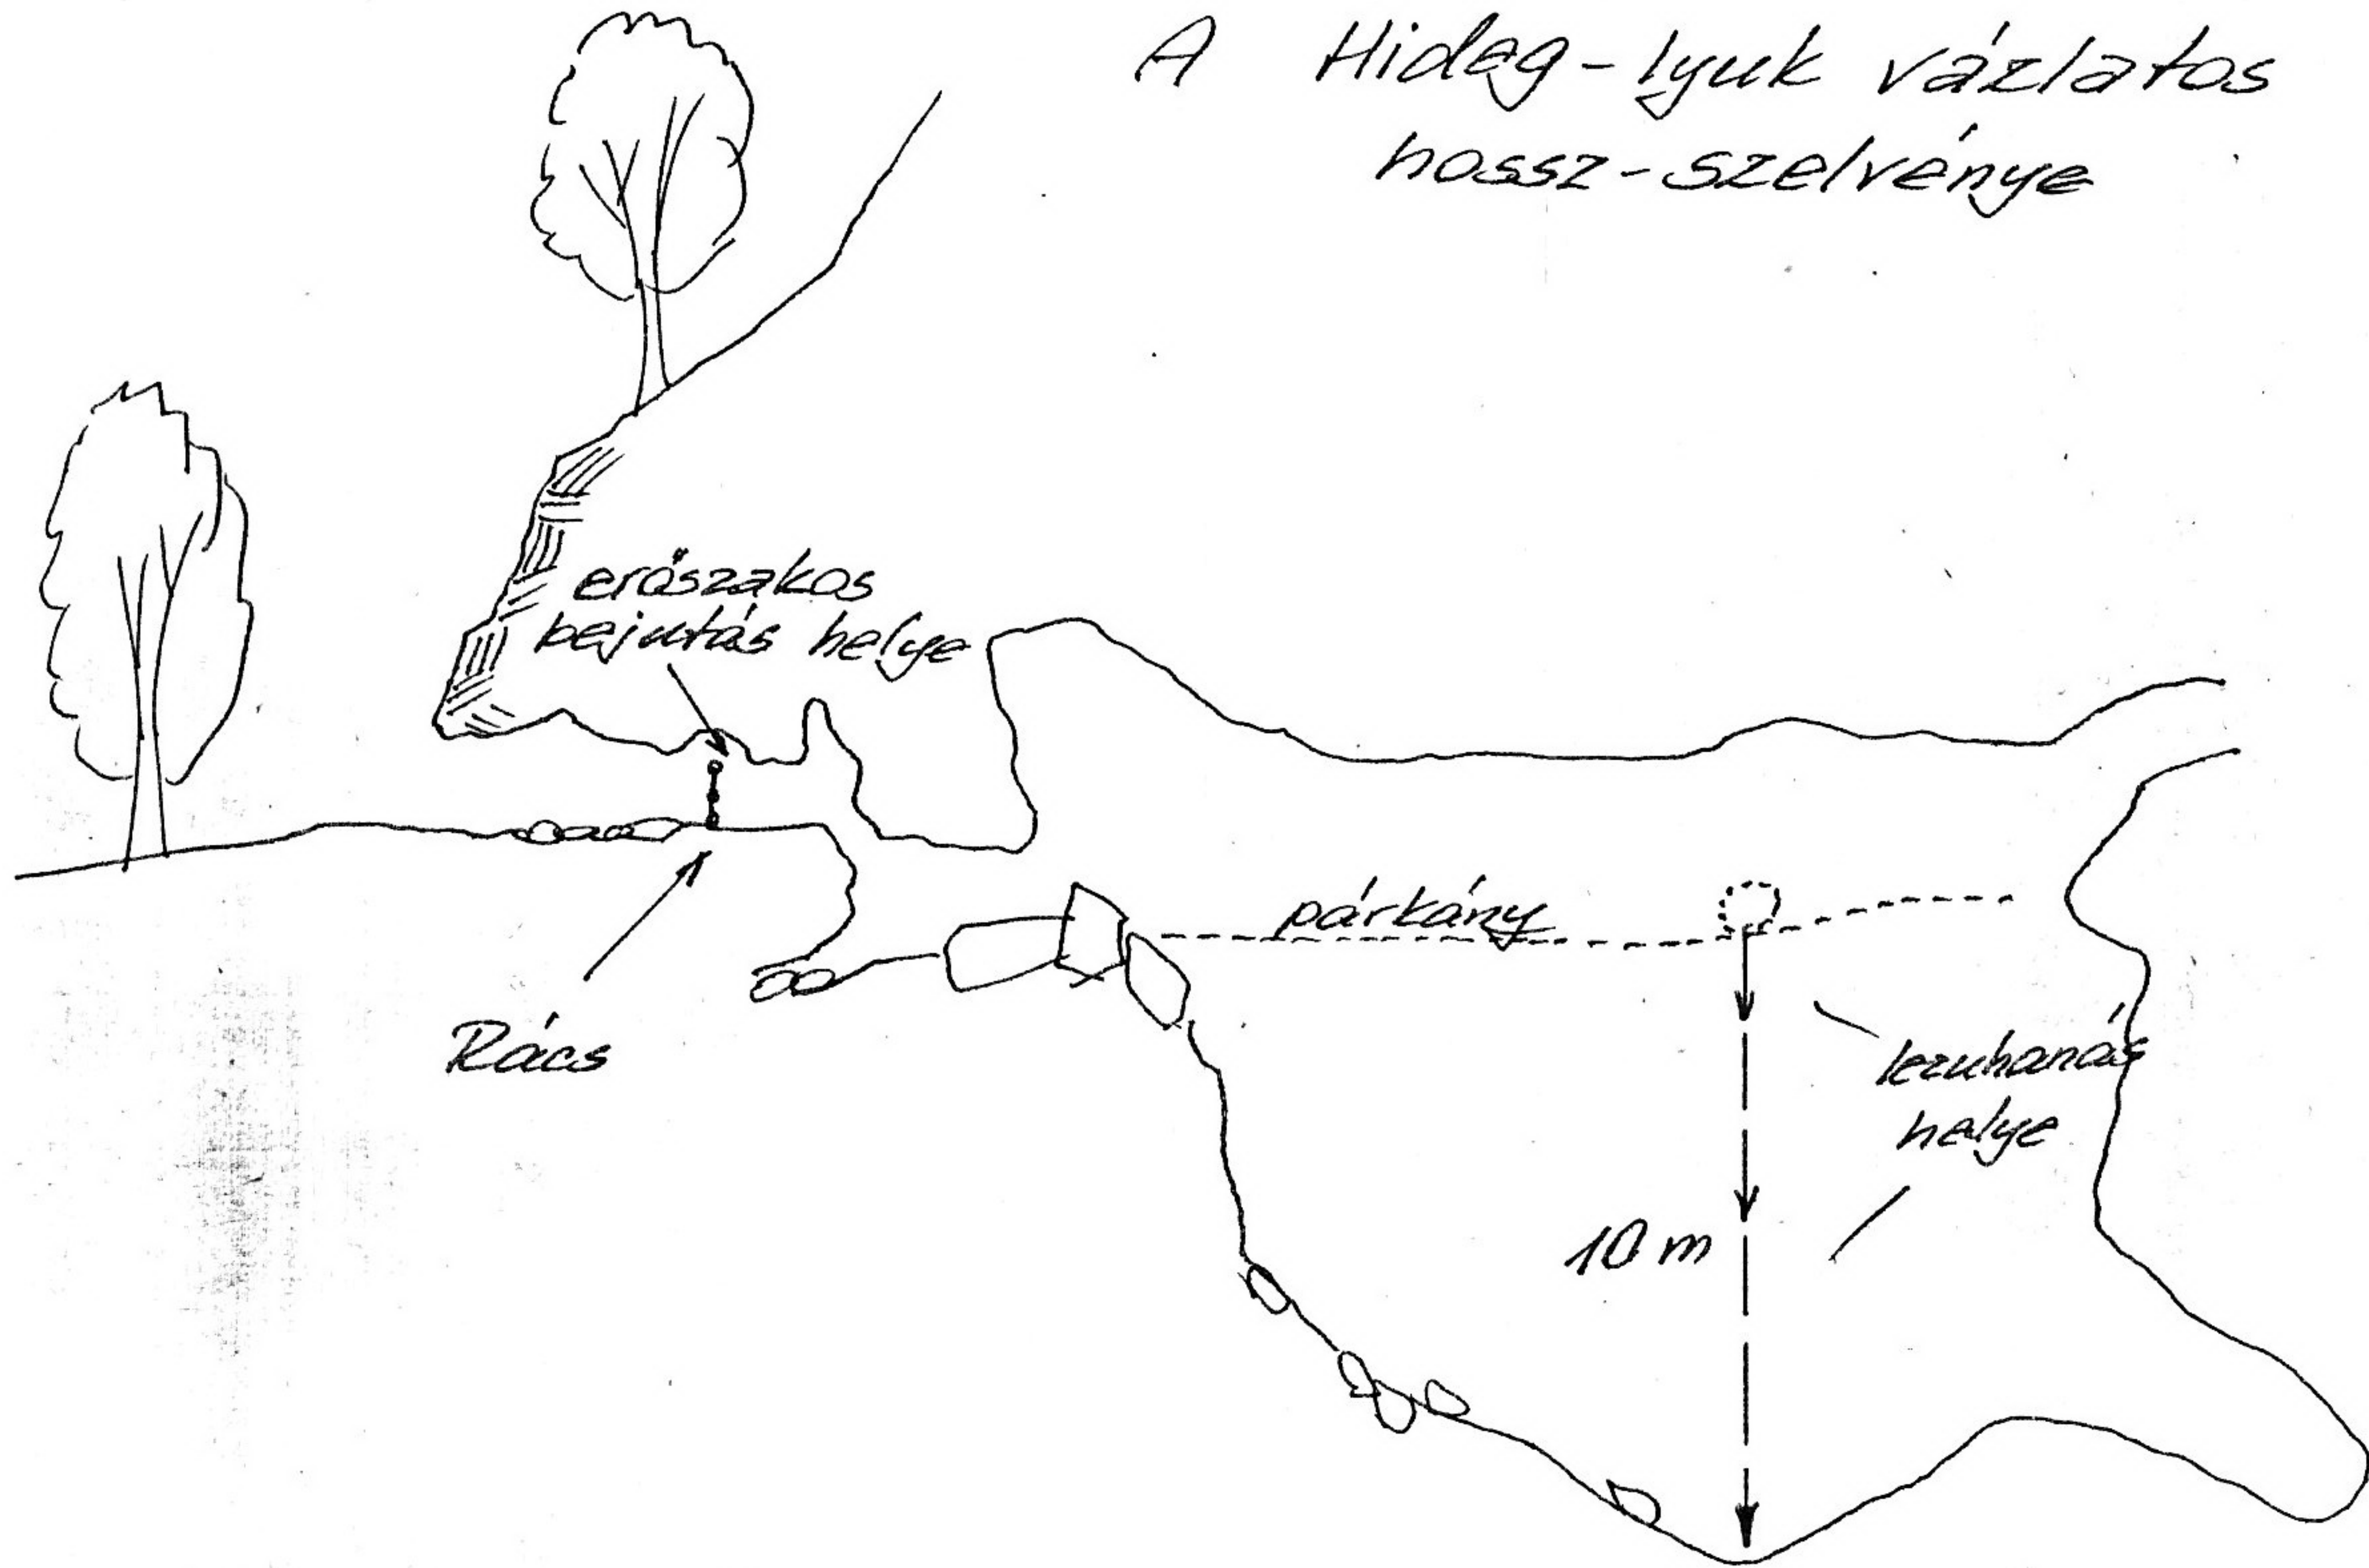 A Hideg-lyuk vázlatos
hossz-szelvénye
erőszakos
bejutás helye
párkány
Rács
lezuhanás
helye
10 m